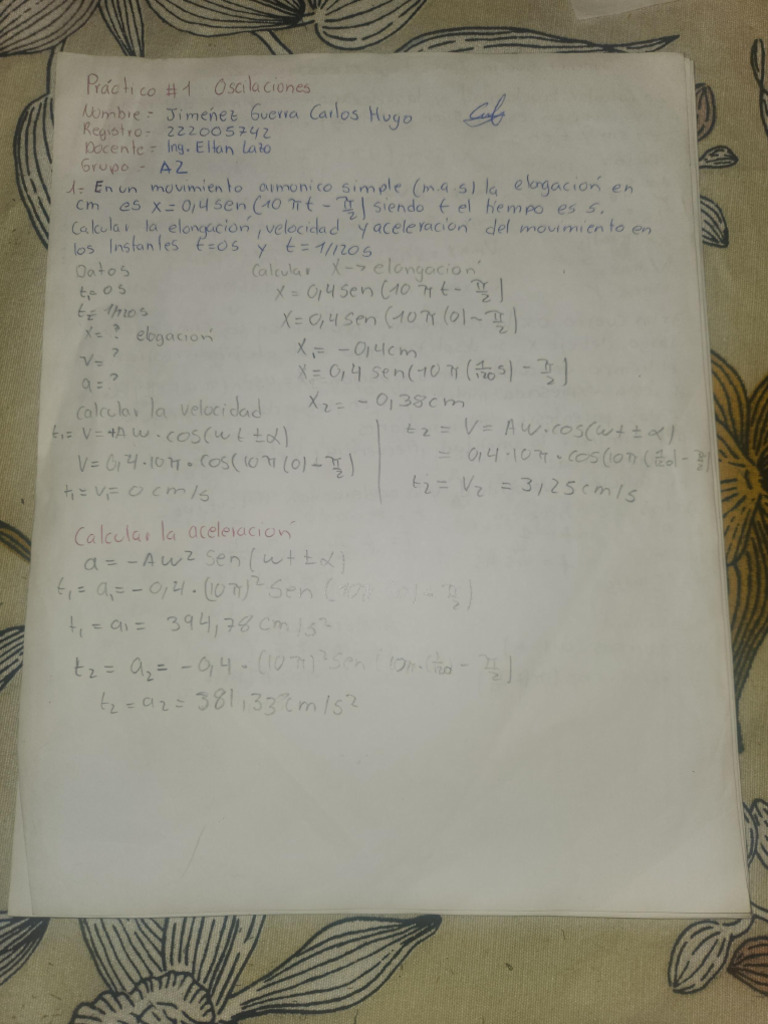 Práctico #1 Oscilaciones
Nombre = Jiménez Guerra Carlos Hugo
Registro - 222005742
Docente = Ing. Eltan Lazo
Grupo - A2
1= En un movimiento armonico simple (m.a.s) la elogación en
cm es x = 0,4 sen (10 πt - π/2) siendo t el tiempo es s.
Calcular la elongación, velocidad y aceleración del movimiento en
los Instantes t=0s y t=1/120s
Datos
t₁= 0s
t₂= 1/120s
x= ? elogación
v= ?
a= ?
Calcular x → elongación
x = 0,4 sen (10 π t - π/2)
x = 0,4 sen (10π (0) - π/2)
x₁ = -0,4cm
x = 0,4 sen (10 π (1/120 s) - π/2)
x₂ = -0,38cm
Calcular la velocidad
t₁ = V = +Aw.cos(wt ±α)
V = 0,4.10π.cos(10π(0) - π/2)
t₁ = V₁ = 0 cm/s
t₂ = V = Aw.cos(wt ±α)
= 0,4.10π.cos(10π(1/120) - π/2)
t₂ = V₂ = 3,25cm/s
Calcular la aceleración
a = -Aw² Sen (wt ±α)
t₁ = a₁ = -0,4.(10π)² Sen (10π(0) - π/2)
t₁ = a₁ = 394,78cm/s²
t₂ = a₂ = -0,4.(10π)² Sen (10π.(1/120) - π/2)
t₂ = a₂ = 381,33cm/s²